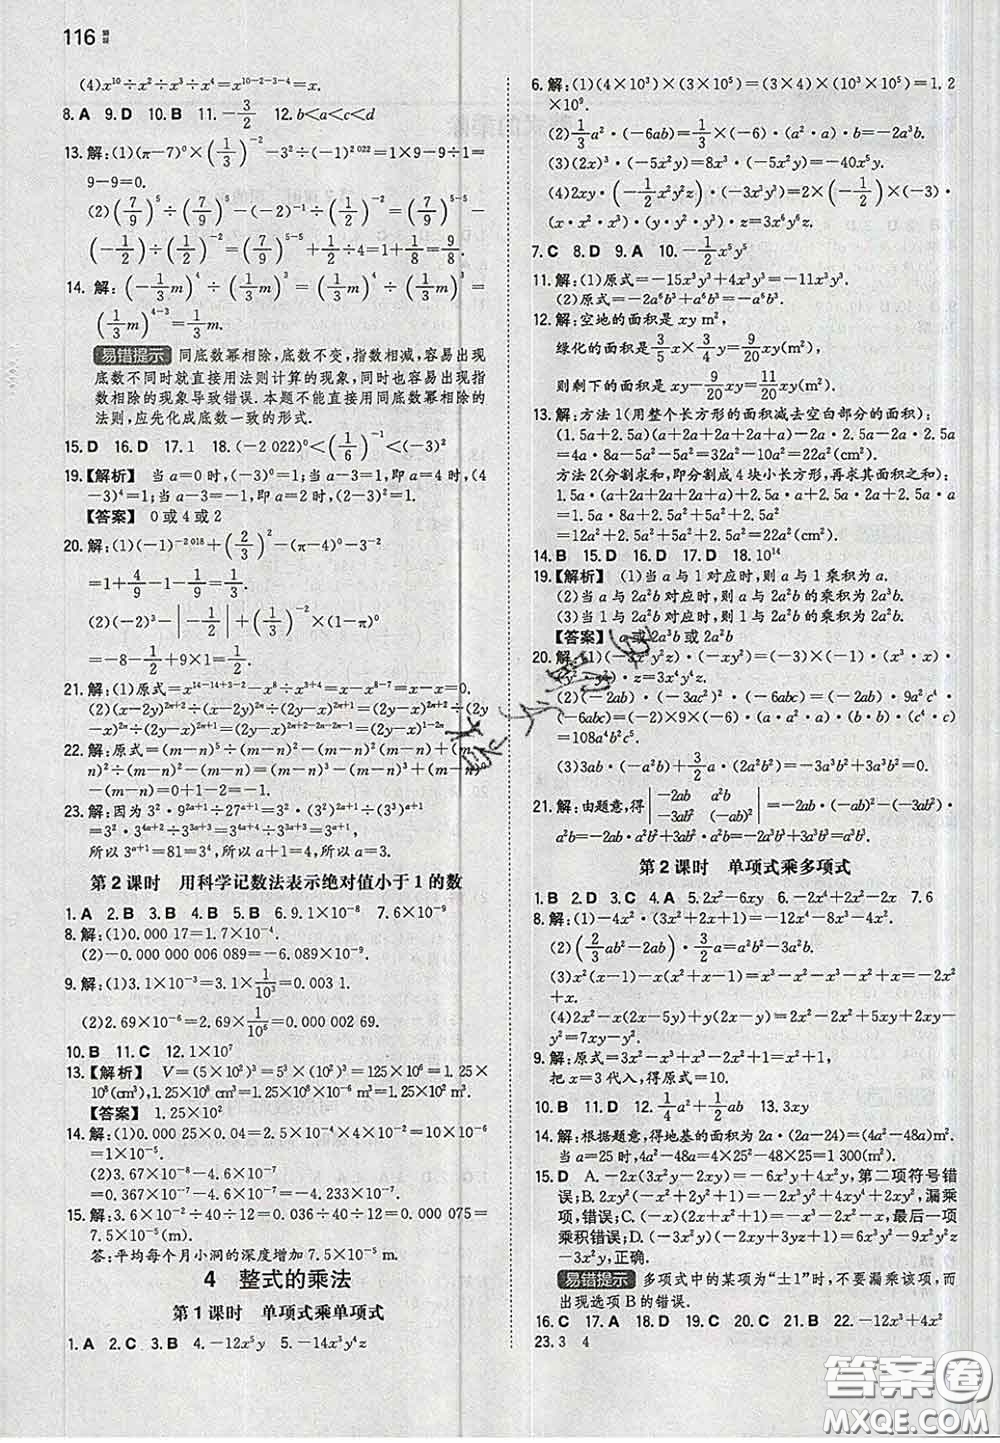 116
(4)x¹⁰÷x²÷x³÷x⁴=x¹⁰⁻²⁻³⁻⁴=x.
8.A 9.D 10.B 11.-3/2 12.b<a<c<d
13.解:(1)(π-7)⁰×(1/3)⁻²-3²÷(-1)²⁰²²=1×9-9÷1=
9-9=0.
(2)(7/9)⁵÷(7/9)⁵-(-2)⁻¹÷(1/2)⁻²=(7/9)⁵⁻⁵-
(-1/2)÷(1/2)⁻²=(7/9)⁵⁻⁵+1/2÷4=1+1/8=9/8.
14.解:(-1/3m)⁴÷(-1/3m)³=(1/3m)⁴÷(1/3m)³
=(1/3m)⁴⁻³=1/3m.
易错提示 同底数幂相除,底数不变,指数相减,容易出现
底数不同时就直接用法则计算的现象,也容易出现
指数相除的现象导致错误.本题不能直接用同底数幂相除的
法则,应先化成底数一致的形式.
15.D 16.D 17.1 18.(-2 022)⁰<(1/6)⁻¹<(-3)²
19.【解析】 当a=0时,(-3)⁰=1;当a-3=1,即a=4时,(4
-3)⁴=1;当a-3=-1,即a=2时,(2-3)²=1.
【答案】 0或4或2
20.解:(1)(-1)⁻²⁰¹⁸+(2/3)²-(π-4)⁰-3⁻²
=1+4/9-1-1/9=1/3.
(2)(-2)³-|-1/2|+(1/3)⁻²×(1-π)⁰
=-8-1/2+9×1=1/2.
21.解:(1)原式=x¹⁴⁻¹⁴⁺³⁻²-x³⁺⁴⁻⁶=x-x=0.
(2)(x-2y)²ⁿ⁺²÷(2y-x)²ⁿ⁺¹=(2y-x)²ⁿ⁺²÷(2y
-x)²ⁿ⁺¹=(2y-x)²ⁿ⁺²⁻²ⁿ⁻¹=(2y-x)¹⁻²ⁿ
22.解:原式=(m-n)⁵÷(m-n)⁵-(m-n)²+(m-n)²+(m-
n)⁵÷(m-n)⁵-(m-n)²=(m-n)⁵-(m-n)²+(m-n)
-(m-n)=0+1-2=-1.
23.解:因为3²·9²ᵃ⁺¹÷27ᵃ⁺¹=3²·(3²)²ᵃ⁺¹÷(3³)ᵃ⁺¹
=3²·3⁴ᵃ⁺²÷3³ᵃ⁺³=3⁴ᵃ⁺⁴÷3³ᵃ⁺³=3ᵃ⁺¹,
所以3ᵃ⁺¹=81=3⁴,所以a+1=4,
所以a=3.
第2课时 用科学记数法表示绝对值小于1的数
1.A 2.D 3.B 4.B 5.B 6.9.1×10⁻⁸ 7.6×10⁻⁹
8.解:(1)0.000 17=1.7×10⁻⁴.
(2)-0.000 000 006 089=-6.089×10⁻⁹.
9.解:(1)3.1×10⁻³=3.1×1/10³=0.003 1.
(2)2.69×10⁻⁶=2.69×1/10⁶=0.000 002 69.
10.B 11.C 12.1×10⁷
13.【解析】 V=(5×10²)³=5³×(10²)³=125×10⁶=1.25×
10⁸(cm³),1.25×10⁸×10⁻⁶ m³=1.25×10² m³.
【答案】 1.25×10²
14.解:(1)0.000 25×0.04=2.5×10⁻⁴×4×10⁻²=10×10⁻⁶
=1×10⁻⁵.
(2)3.67×10⁻⁸-4.7×10⁻⁷
=0.367×10⁻⁷-4.7×10⁻⁷=-4.333×10⁻⁷.
15.解:3.6×10⁻²÷40÷12=0.036÷40÷12=0.000 075=
7.5×10⁻⁵(m).
答:平均每个月小洞的深度增加7.5×10⁻⁵ m.
4 整式的乘法
第1课时 单项式乘单项式
1.A 2.C 3.B 4.-12x⁵y 5.-14x³y⁴z
6.解:(1)(4×10³)×(3×10⁵)=(3×4)×(10³×10⁵)=1.2
×10⁹.
(2)1/3a²·(-6ab)=1/3×(-6)·(a²·a)·b=-2a³b.
(3)(2x)³·(-5x²y)=8x³·(-5x²y)=-40x⁵y.
(4)2xy·(-1/2x²y²z)·(-3x³y³)=2×(-1/2)×(-3)·
(x·x²·x³)·(y·y²·y³)·z=3x⁶y⁶z.
7.C 8.D 9.A 10.-1/2x⁵y⁵
11.解:(1)原式=-15x³y³+4x³y³=-11x³y³.
(2)原式=-2a⁶b³+a⁶b³=-a⁶b³.
12.解:空地的面积是xy m²,
绿化的面积是3/5x×3/4y=9/20xy(m²),
则剩下的面积是xy-9/20xy=11/20xy(m²).
13.解:方法1(用整个长方形的面积减去空白部分的面积):
(1.5a+2.5a)(a+2a+2a+2a+a)-2a·2.5a-2a·2.5a
=4a·8a-5a²-5a²=32a²-10a²=22a²(cm²).
方法2(分割求和,即分割成4块小长方形,再求其面积和):
1.5a·(a+2a+2a+2a+a)+2.5a·a+2.5a·2a+2.5a·a
=1.5a·8a+2.5a²+5a²+2.5a²
=12a²+2.5a²+5a²+2.5a²=22a²(cm²).
14.B 15.D 16.D 17.D 18.10¹⁴
19.【解析】 (1)当a与1对应时,则a与1乘积为a.
(2)当a与2a²b对应时,则a与2a²b的乘积为2a³b.
(3)当1与2a²b对应时,则1与2a²b的乘积为2a²b.
【答案】 a或2a³b或2a²b
20.解:(1)(-3x³y²z)·(-xy²)=(-3)×(-1)·(x³·x)·
(y²·y²)·z=3x⁴y⁴z.
(2)(-2ab)·(-3ac²)²·(-6abc)=(-2ab)·9a²c⁴·
(-6abc)=(-2)×9×(-6)·(a·a²·a)·(b·b)·(c⁴·c)
=108a⁴b²c⁵.
(3)3ab·(-a²b)+3/2a·(a²b²)=-3a³b²+3/2a³b²=-3/2a³b².
21.解:由题意,得|-2ab a²b -3ab² (-ab)²|=-2ab·(-ab)²-(-3ab²)·
a²b=-2ab·a²b²+3ab²·a²b=-2a³b³+3a³b³=a³b³.
第2课时 单项式乘多项式
1.B 2.D 3.A 4.C 5.2x²-6xy 6.-2x⁴+2x²-2x 7.6
8.解:(1)-4x²·(3x²+2x-1)=-12x⁴-8x³+4x².
(2)(2/3ab²-2ab)·3/2a=a²b²-3a²b.
(3)x²(x-1)-x(x²+x-1)=x³-x²-x³-x²+x=-2x²
+x.
(4)2x²-x(2x-5y)+y(2x-y)=2x²-2x²+5xy+2xy-
y²=7xy-y².
9.解:原式=3x²-x³+x³-2x²+1=x²+1,
把x=3代入,得原式=10.
10.B 11.D 12.1/4a²+1/2ab 13.3xy
14.解:根据题意,得地基的面积为2a·(2a-24)=(4a²-48a)m².
当a=25时,4a²-48a=4×25²-48×25=1 300(m²).
15.D A.-2x(3x²y-2xy)=-6x³y+4x²y,第二项符号错
误;B.2xy²(-x²+2y²+1)=-2x³y²+4xy⁴+2xy²,漏乘
项,错误;C.(-x)(2x+x²+1)=-2x²-x³-x,最后一项
乘积错误;D.(-3x²y)(-2xy+3yz-1)=6x³y²-9x²y²z
+3x²y,正确.
易错提示 多项式中的某项为“±1”时,不要漏乘该项,而
出现选项B的错误.
16.C 17.A 18.D 19.C 20.A 21.B 22.-12x³+4x²
23.3 4
答案圈
MXQE.COM